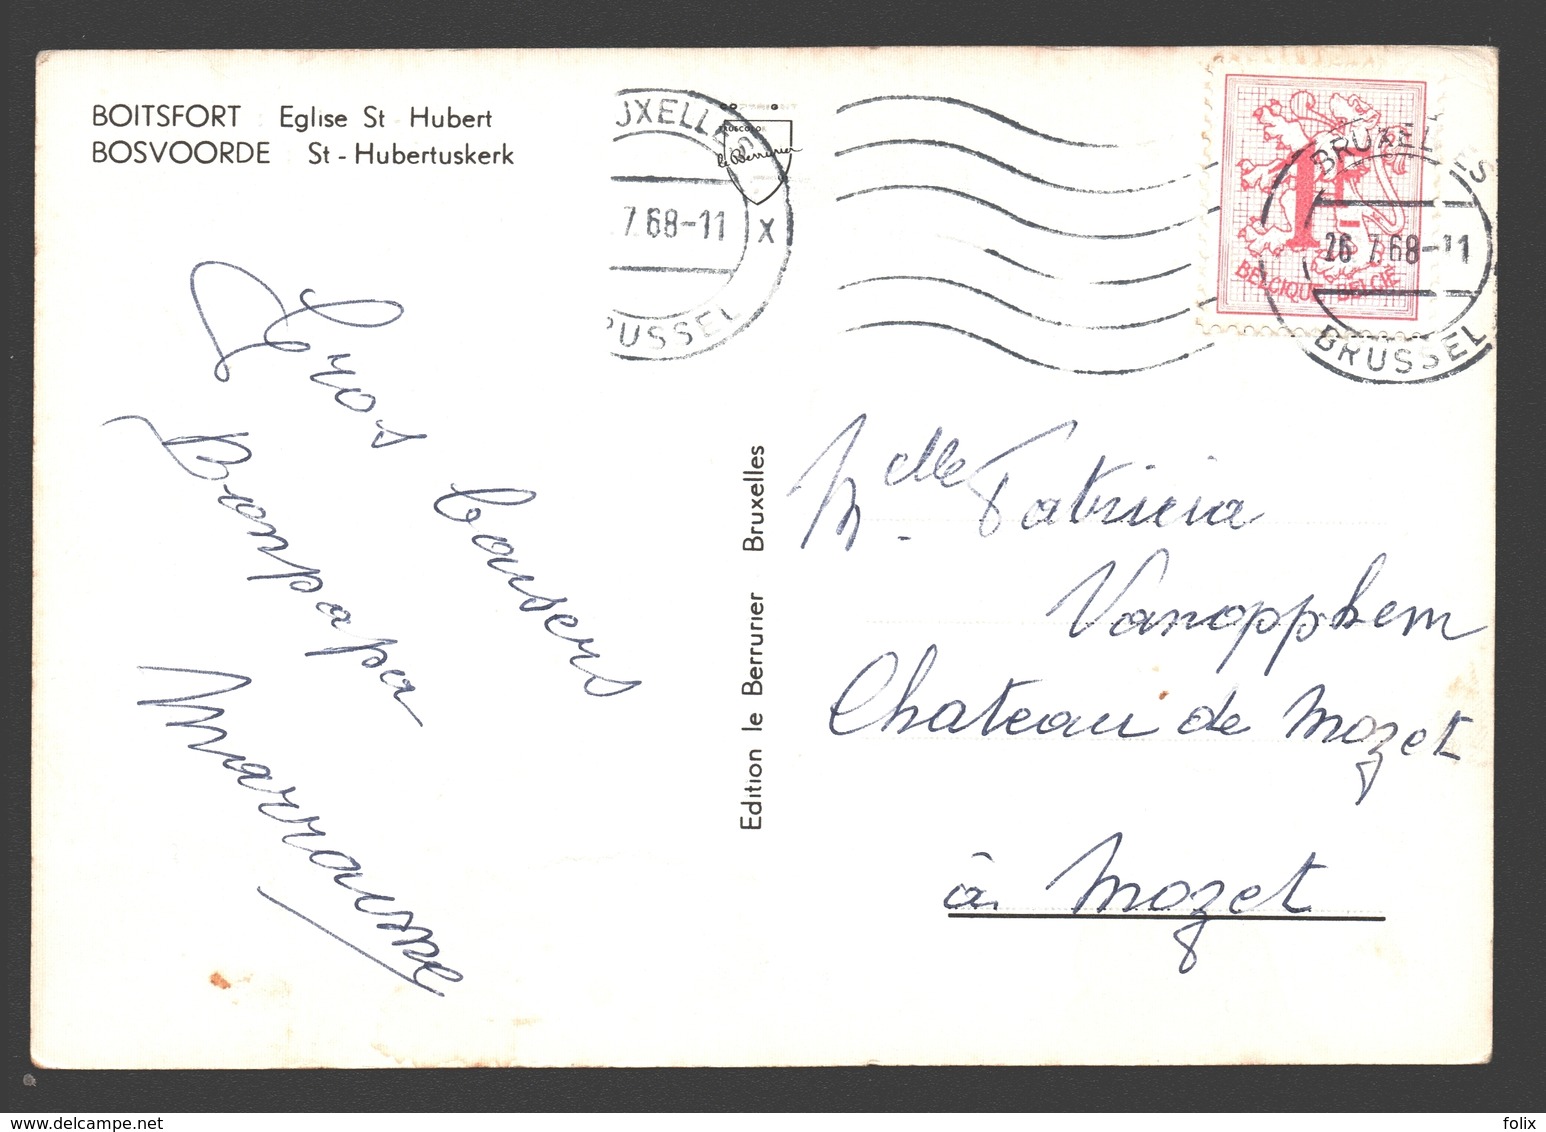 BOITSFORT Eglise St Hubert
BOSVOORDE St - Hubertuskerk
COPYRIGHT
TRUECOLOR
le Berrurier
UXELLES
7.68-11 X
RUSSEL
1F
BELGIQUE BELGIË
BRUXELLES
26.7.68-11
BRUSSEL
Gros Baisers
Bonpapa
Marraine
Edition le Berrurier Bruxelles
Melle Patricia
Vanopphem
Chateau de Mozet
à Mozet
felix
delcampe.net